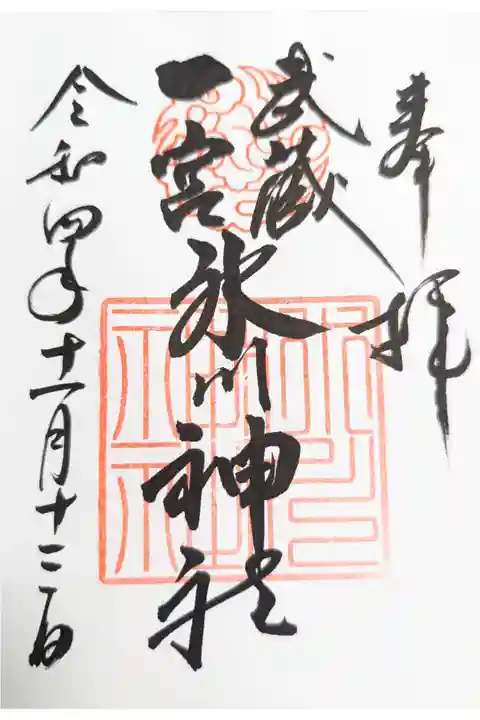 奉拝
武蔵
一宮
氷川神社
令和四年十一月十二日